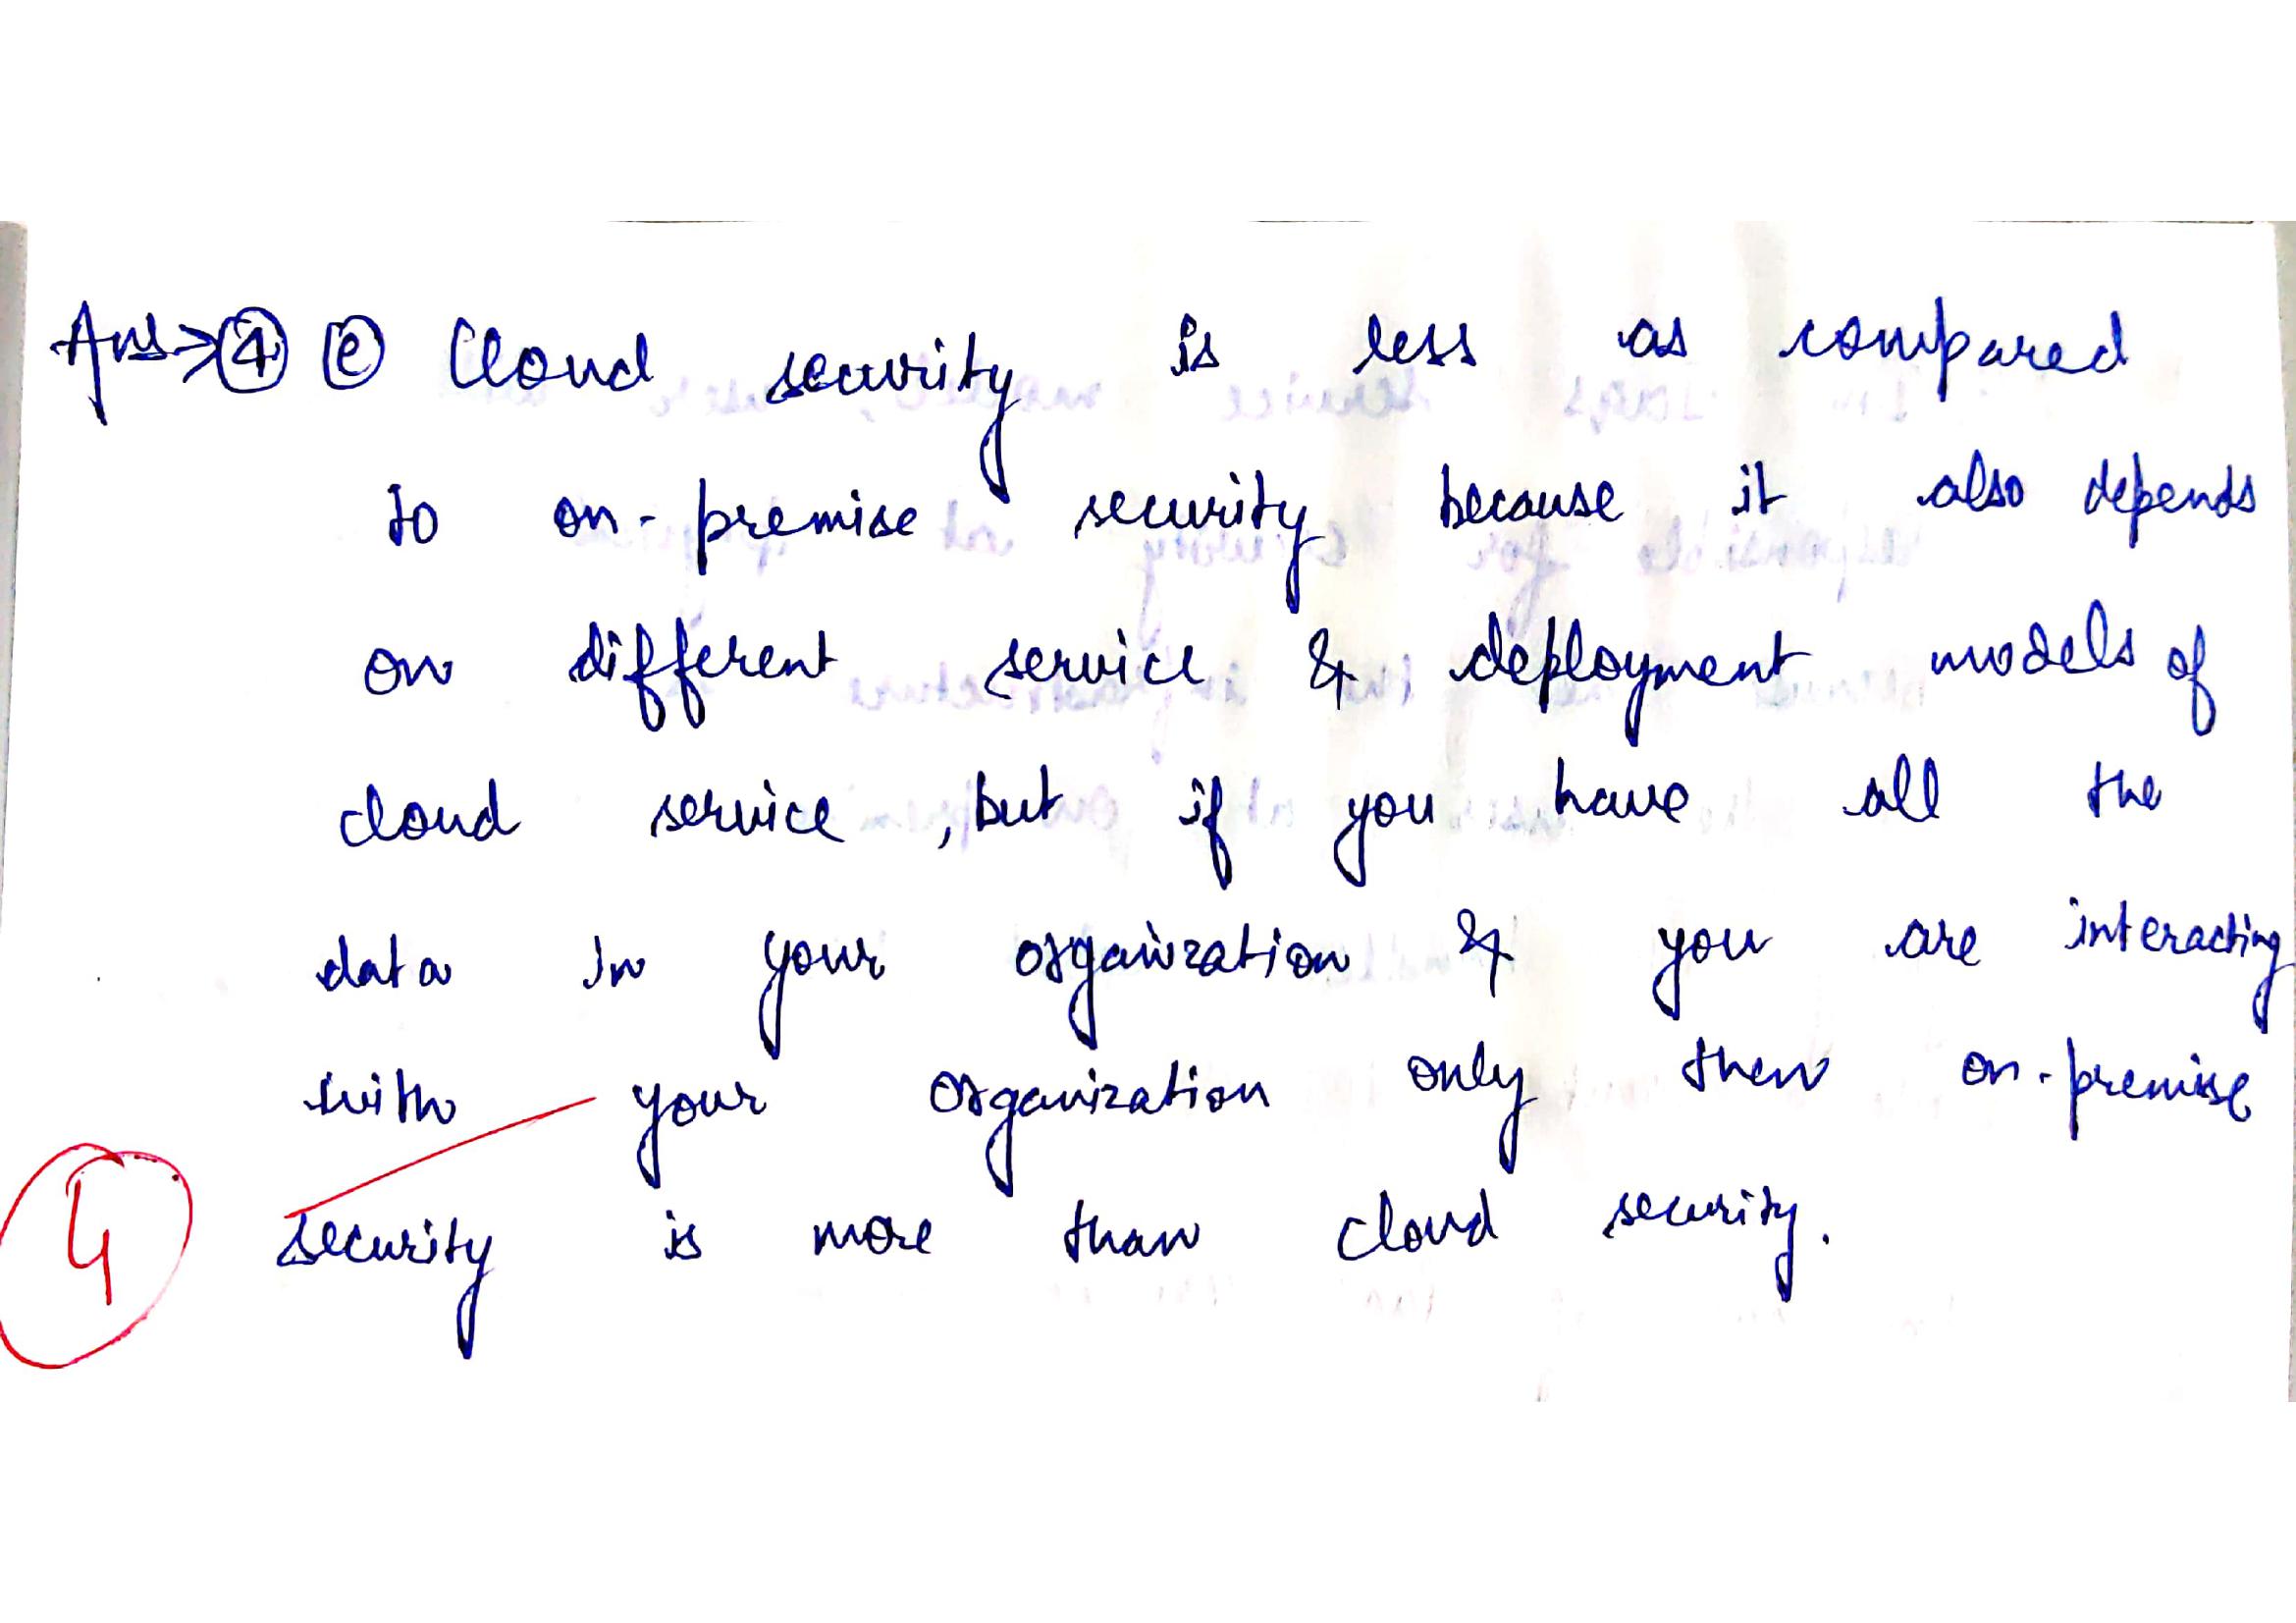 Ans→④ ⓔ Cloud security is less as compared
to on-premise security because it also depends
on different service & deployment models of
cloud service, but if you have all the
data in your organization & you are interacting
with your organization only then on-premise
security is more than cloud security.
4